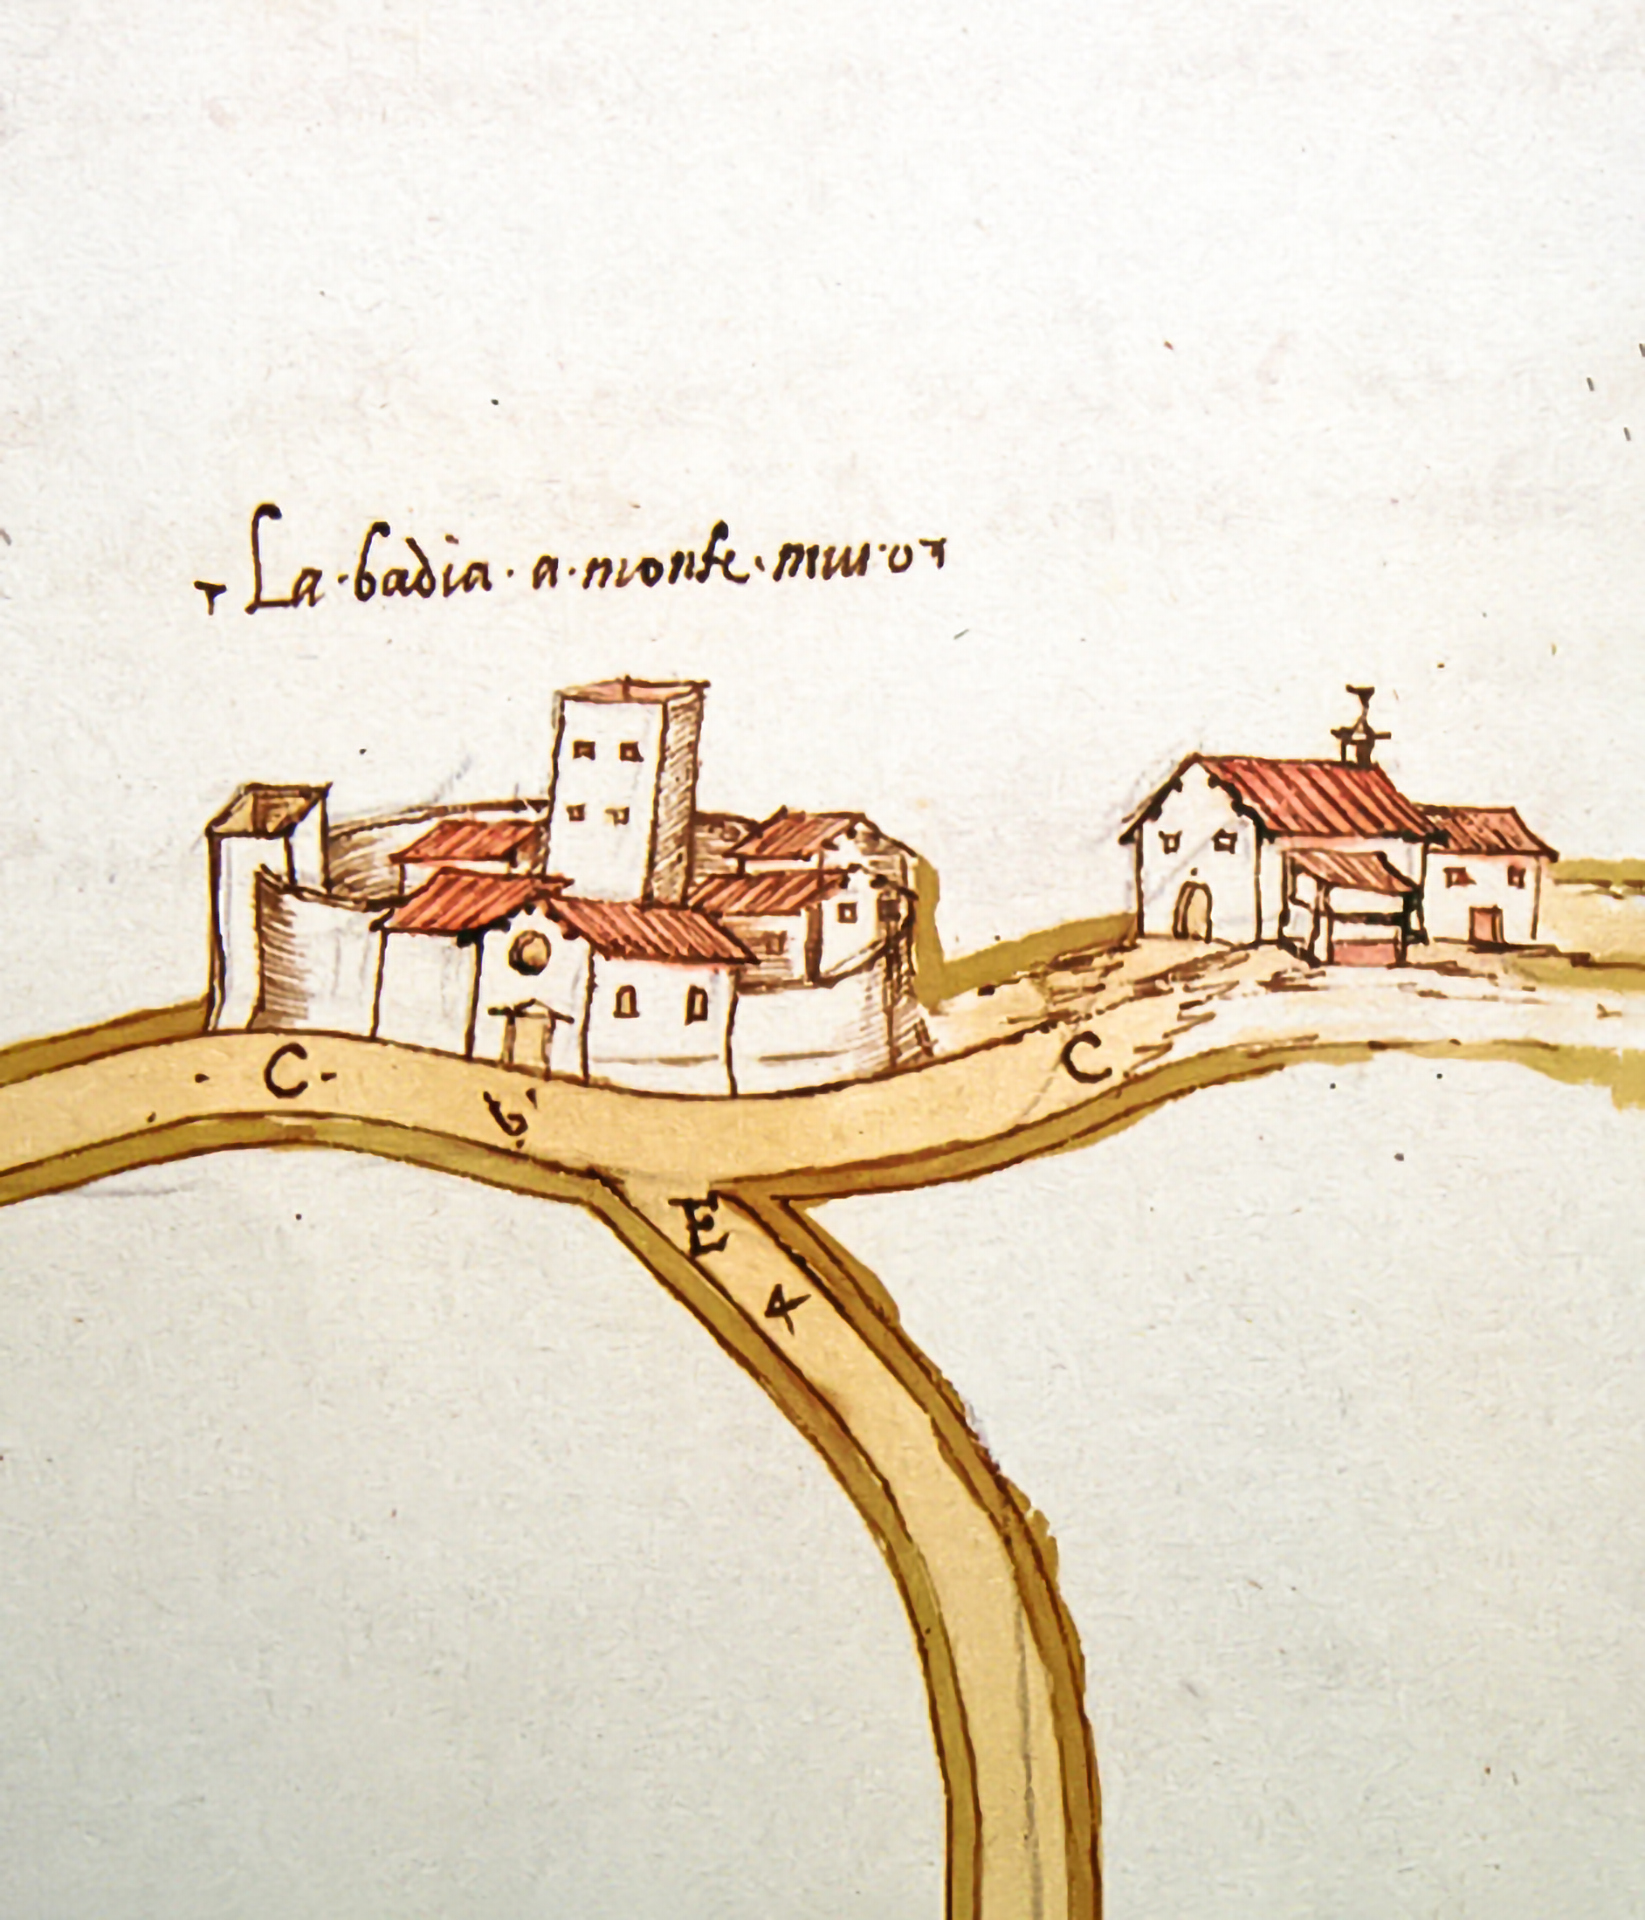 La · badia · a · monte · muro
C ·
C
b
E
4